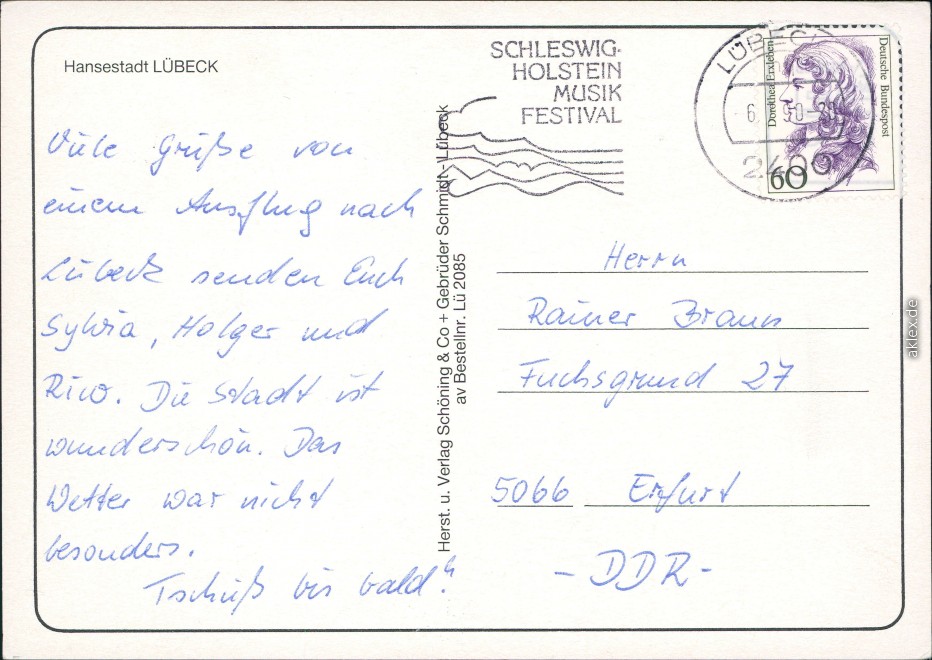 Hansestadt LÜBECK
Viele Grüße von
einem Ausflug nach
Lübeck senden Euch
Sylvia, Holger und
Rico. Die Stadt ist
wunderschön. Das
Wetter war nicht
besonders.
Tschüß bis bald!
Herst. u. Verlag Schöning & Co + Gebrüder Schmidt - Lübeck
av Bestellnr. Lü 2085
SCHLESWIG-
HOLSTEIN
MUSIK
FESTIVAL
LÜBECK
2400
Dorothea Erxleben
Deutsche Bundespost
60
Herrn
Rainer Braun
Fuchsgrund 27
5066 Erfurt
- DDR -
aklex.de